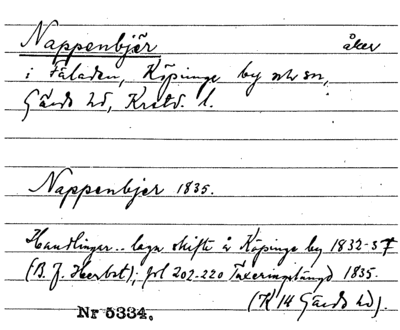 Nappenbjër åker
i Fäladen, Köpinge by och sn,
Gärds hd, Krstd. l.
Nappenbjer 1835.
Handlingar.. laga skifte å Köpinge by 1832-37
(B. J. Herbst); fol 202-220 Taxeringslängd 1835.
(K 14 Gärds hd).
Nr 5334.